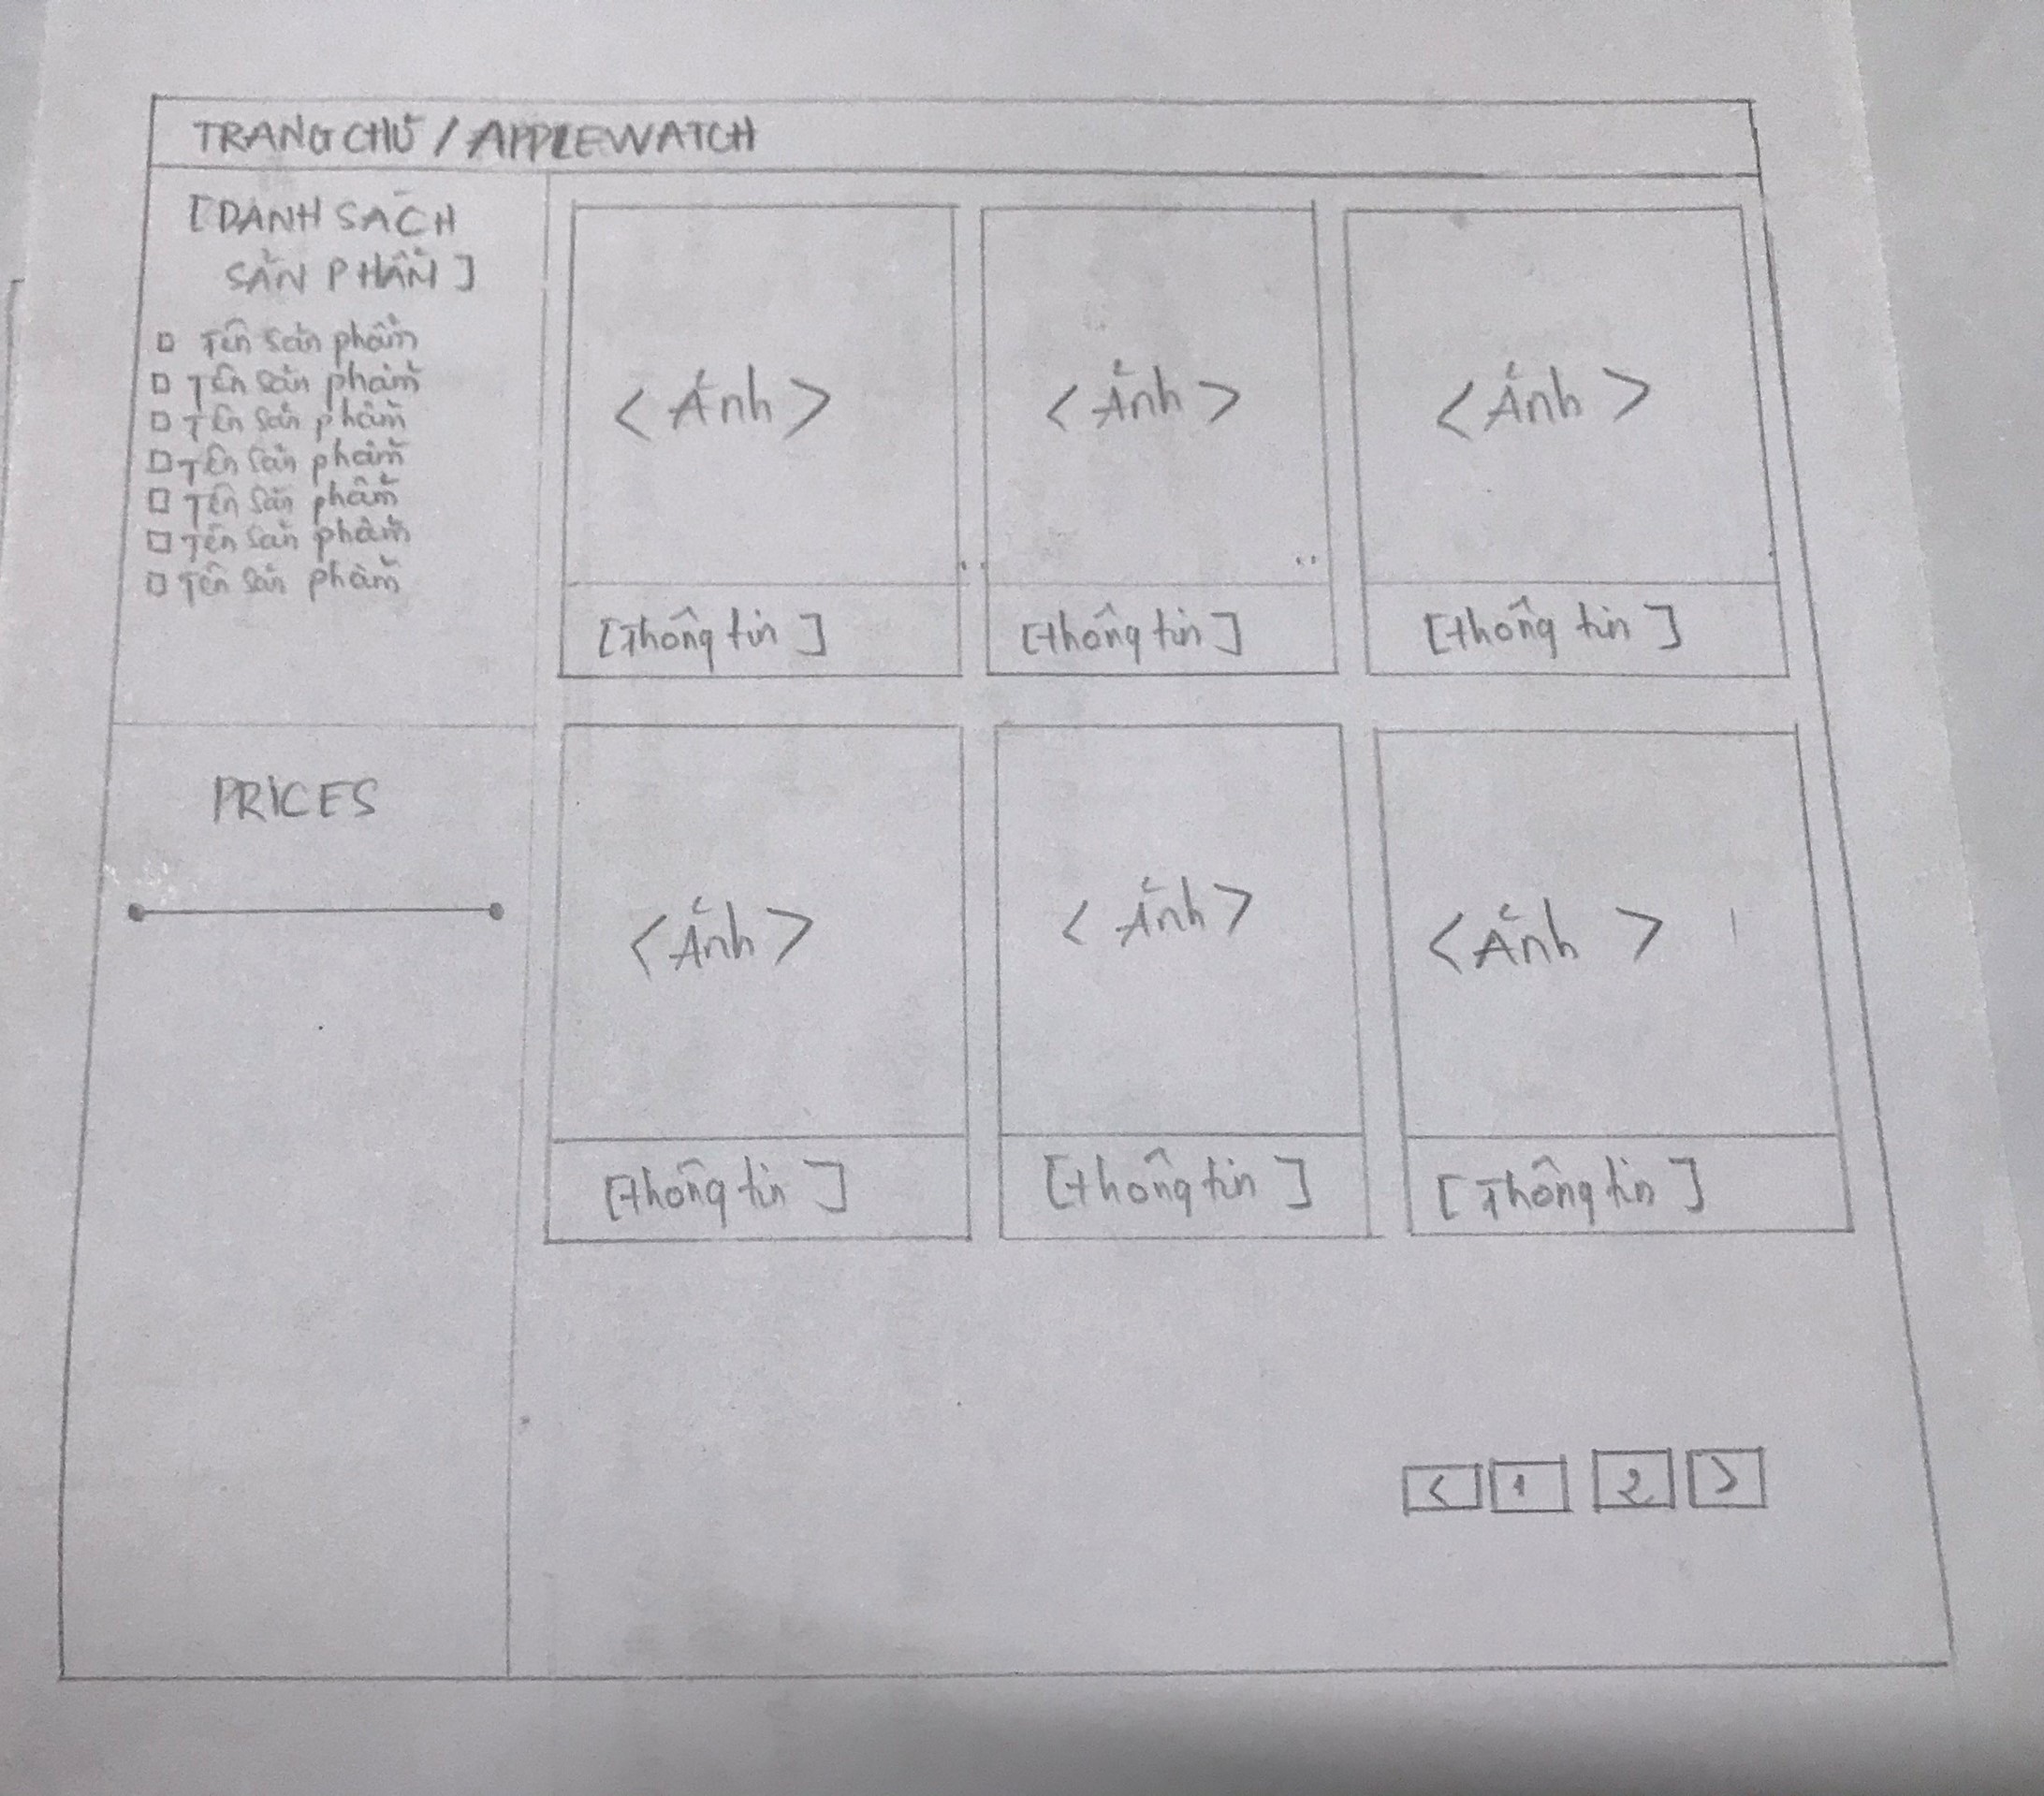 TRANG CHỦ / APPLEWATCH
[DANH SÁCH
SẢN PHẨM]
Tên sản phẩm
Tên sản phẩm
Tên sản phẩm
Tên sản phẩm
Tên sản phẩm
Tên sản phẩm
Tên sản phẩm
PRICES
<Ảnh> <Ảnh> <Ảnh>
[Thông tin] [thông tin] [thông tin]
<Ảnh> <Ảnh> <Ảnh>
[thông tin] [thông tin] [Thông tin]
< 1 2 >